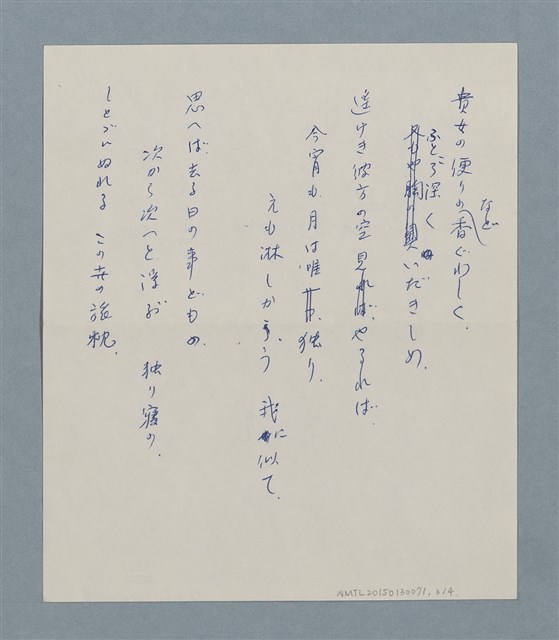 貴女の便りの香ぐわしく、
など
ふところ深く いだきしめ、
遥けき彼方の空見やるれば、
今宵も月は唯独り、
えも淋しかろう 我に似て、
思へば去る日の事どもの、
次から次へと浮ぶ 独り寝の、
しとどにぬれる この世の旅枕、
NMTL20150130071, 3/4